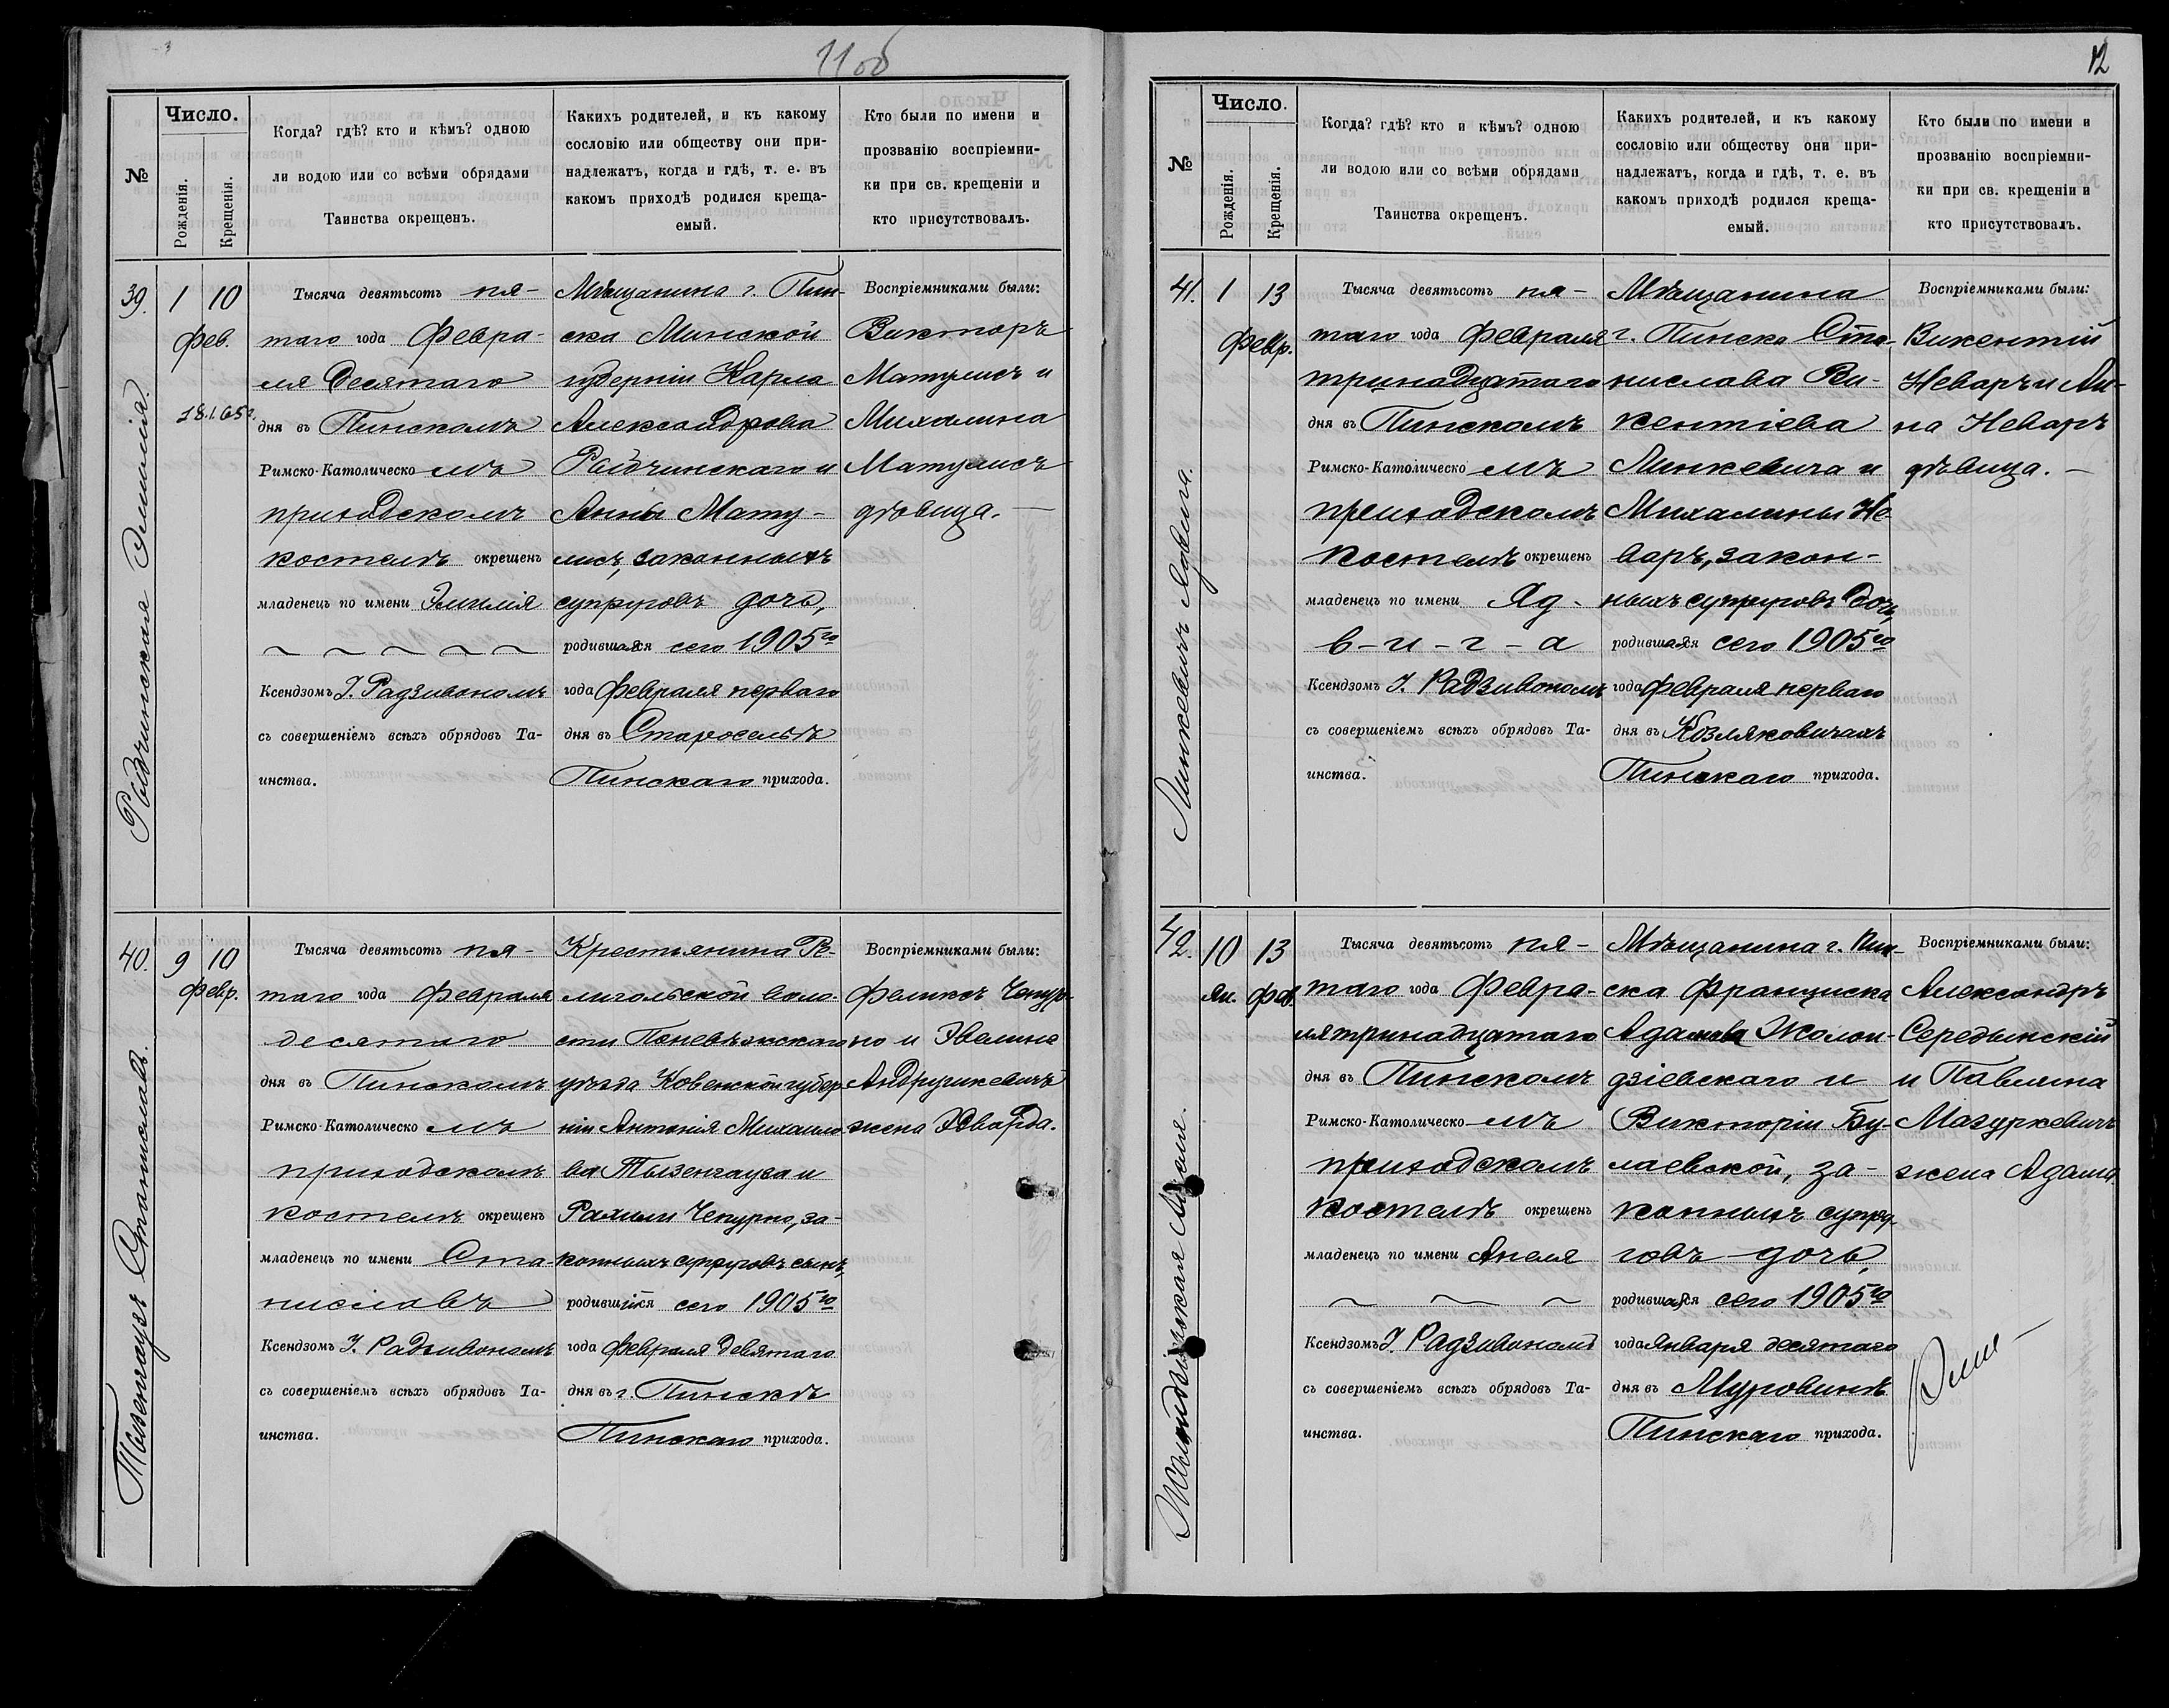 11 об
№
Число.
Рожденія.
Крещенія.
Когда? гдѣ? кто и кѣмъ? одною
ли водою или со всѣми обрядами
Таинства окрещенъ.
Какихъ родителей, и къ какому
сословію или обществу они при-
надлежатъ, когда и гдѣ, т. е. въ
какомъ приходѣ родился креща-
емый.
Кто были по имени и
прозванію воспріемни-
ки при св. крещеніи и
кто присутствовалъ.
39.
Эмилія.
1 10
Фев.
Тысяча девятьсотъ пя-
таго года Февра-
ля десятаго
дня въ Пинскомъ
Римско-Католическо мъ
приходскомъ
костелѣ окрещенъ
младенецъ по имени Эмилія
Ксендзомъ І. Радзивономъ
съ совершеніемъ всѣхъ обрядовъ Та-
инства.
Мѣщанина г. Пин-
ска Минской
губерніи Карла
Александрова
и
Анны Мату-
лисъ, законныхъ
супруговъ дочь,
родившаяся сего 1905го
года Февраля перваго
дня въ Старосельѣ
Пинскаго прихода.
Воспріемниками были:
Викторъ
Матулисъ и
Михалина
Матулисъ
дѣвица. —
40.
Тызенгаузъ Станиславъ.
9 10
Февр.
Тысяча девятьсотъ пя-
таго года Февраля
десятаго
дня въ Пинскомъ
Римско-Католическо мъ
приходскомъ
костелѣ окрещенъ
младенецъ по имени Ста-
ниславъ
Ксендзомъ І. Радзивономъ
съ совершеніемъ всѣхъ обрядовъ Та-
инства.
Крестьянина
воло-
сти Поневѣжскаго
уѣзда Ковенской губер
ніи Антонія Михаило
ва Тызенгауза и
Рахили Чепурно, за-
конныхъ супруговъ сынъ,
родившійся сего 1905го
года Февраля девятаго
дня въ г. Пинскѣ
Пинскаго прихода.
Воспріемниками были:
Феликсъ Чепур-
но и Эвелина
Андрушкевичъ
жена Эдварда.
12
№
Число.
Рожденія.
Крещенія.
Когда? гдѣ? кто и кѣмъ? одною
ли водою или со всѣми обрядами
Таинства окрещенъ.
Какихъ родителей, и къ какому
сословію или обществу они при-
надлежатъ, когда и гдѣ, т. е. въ
какомъ приходѣ родился креща-
емый.
Кто были по имени и
прозванію воспріемни-
ки при св. крещеніи и
кто присутствовалъ.
41.
Линкевичъ Ядвига.
1 13
Февр.
Тысяча девятьсотъ пя-
таго года Февраля
тринадцатаго
дня въ Пинскомъ
Римско-Католическо мъ
приходскомъ
костелѣ окрещенъ
младенецъ по имени Яд-
в-и-г-а
Ксендзомъ І. Радзивономъ
съ совершеніемъ всѣхъ обрядовъ Та-
инства.
Мѣщанина
г. Пинска Ста-
нислава Ви-
кентіева
Линкевича и
Михалины Не-
варъ, закон-
ныхъ супруговъ дочь,
родившаяся сего 1905го
года Февраля перваго
дня въ Козляковичахъ
Пинскаго прихода.
Воспріемниками были:
Викентій
Неваръ и Ан-
на Неваръ
дѣвица. —
42.
Анеля.
10 13
Ян. Фев.
Тысяча девятьсотъ пя-
таго года Февра-
ля тринадцатаго
дня въ Пинскомъ
Римско-Католическо мъ
приходскомъ
костелѣ окрещенъ
младенецъ по имени Анеля
Ксендзомъ І. Радзивономъ
съ совершеніемъ всѣхъ обрядовъ Та-
инства.
Мѣщанина г. Пин-
ска Франциска
Адамова Жолон-
дзіевскаго и
Викторіи Бу-
лаевской, за-
конныхъ супру-
говъ дочь,
родившаяся сего 1905го
года Января десятаго
дня въ
Пинскаго прихода.
Воспріемниками были:
Александръ
Середынскій
и Павлина
Мазуркевичъ
жена Адама.